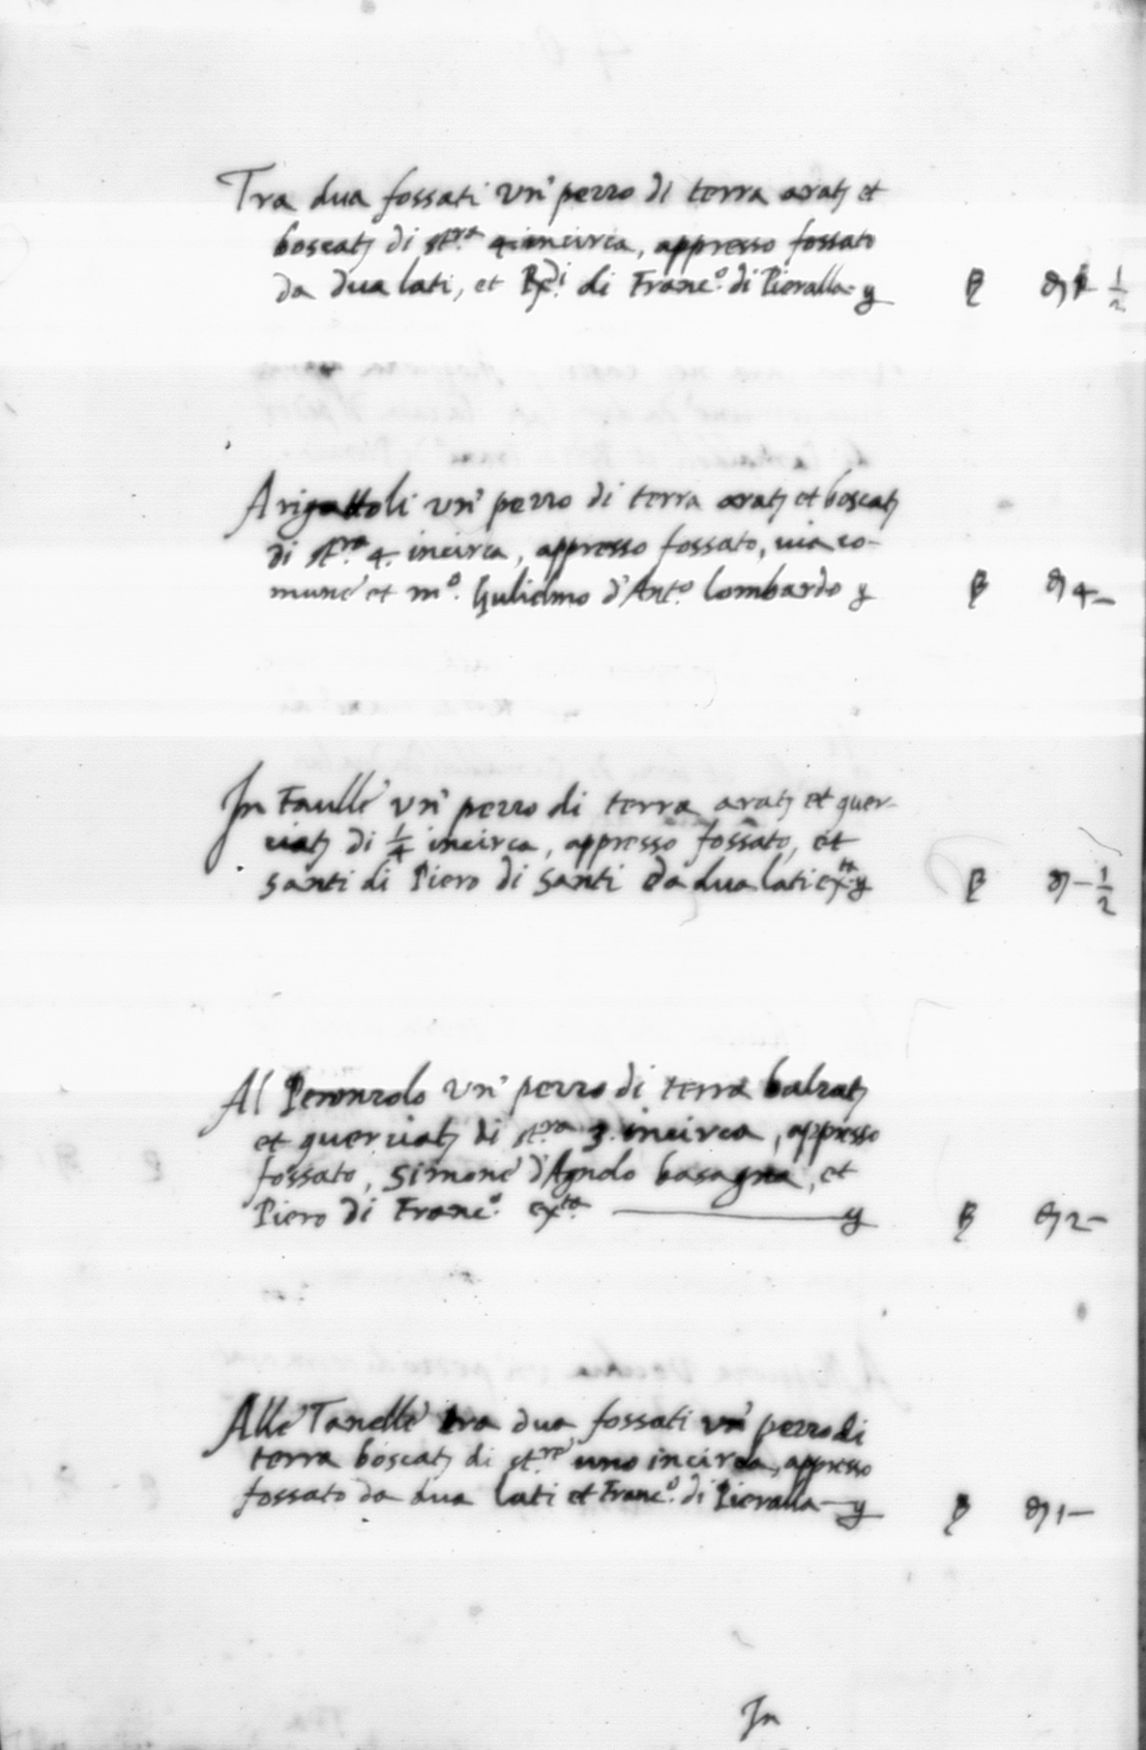 Tra dua fossati un' pezzo di terra arat; et
boscat; di st.ra 4. incirca, appresso fossato
da dua lati, et Rx.di di Franc.o di Pieralla y ₤ ∂ 1 1/2
Arigattoli un' pezzo di terra arat; et boscat;
di st.ra 4. incirca, appresso fossato, via co-
mune et m.o Gulielmo d'Ant.o lombardo y ₤ ∂ 4 –
In Faulle un' pezzo di terra arat; et quer-
ciat; di 1/4 incirca, appresso fossato, et
santi di Piero di santi da dua lati ex.ta y ₤ ∂ – 1/2
Al Peronzolo un' pezzo di terra balzat;
et querciat; di st.ra 3. incirca, appresso
fossato, simone d'Agnolo basagna, et
Piero di Franc.o ex.ta y ₤ ∂ 2 –
Alle Tanelle tra dua fossati un' pezzo di
terra boscat; di st.ro uno incirca, appresso
fossato da dua lati et Franc.o di Pieralla – y ₤ ∂ 1 –
In